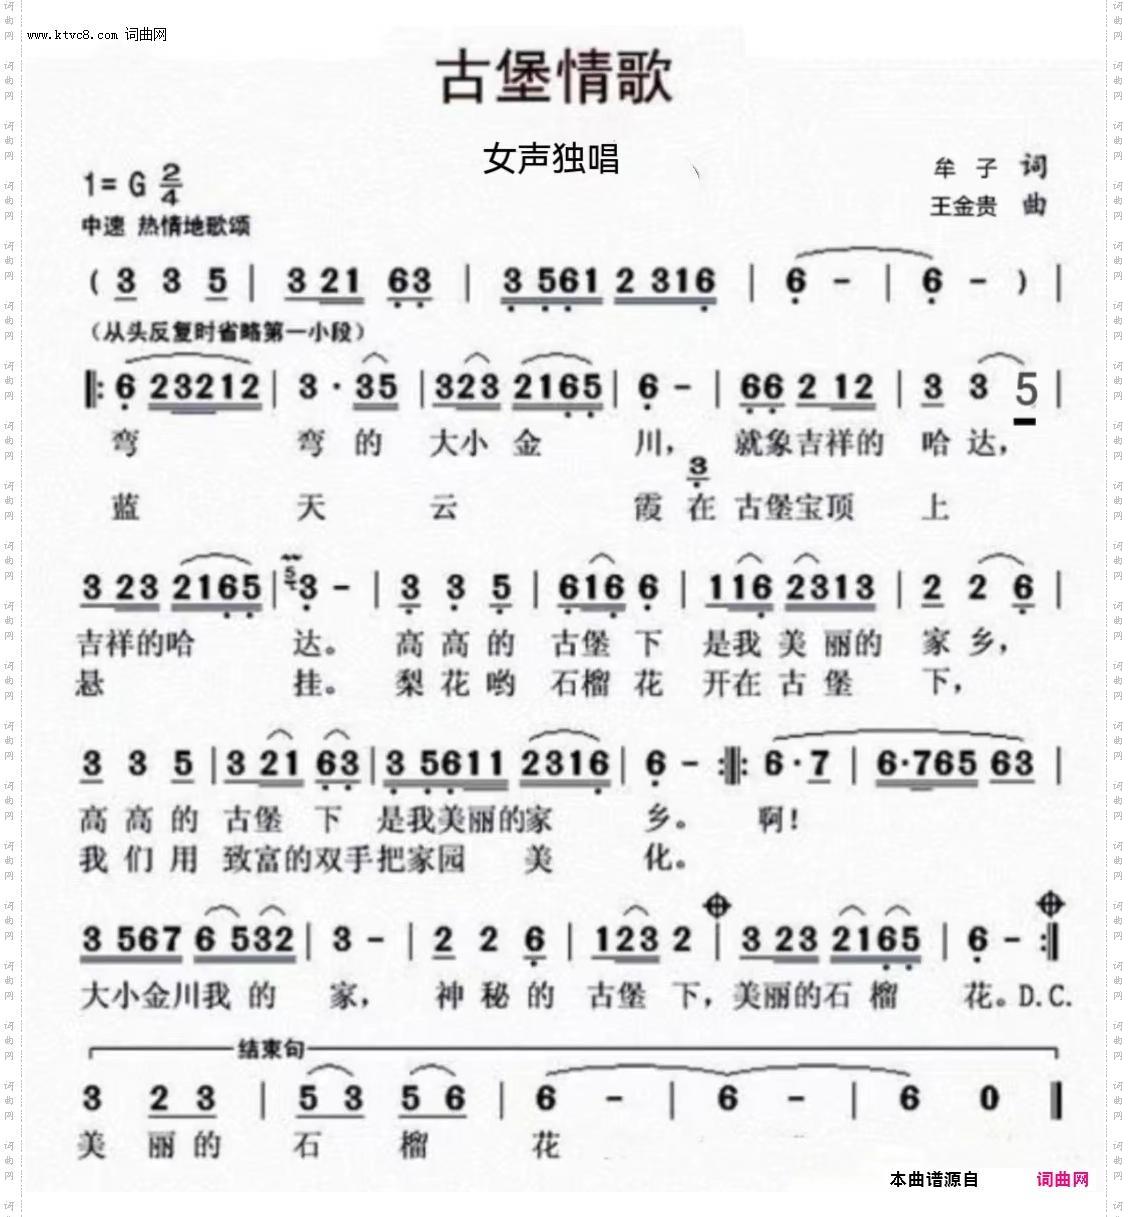 www.ktvc8.com 词曲网
古堡情歌
女声独唱
1=G 2/4
牟子 词
中速 热情地歌颂
王金贵 曲
( 3 3 5 | 3 21 63 | 3 561 2 316 | 6 - | 6 - ) |
(从头反复时省略第一小段)
|: 6 23212 | 3 · 35 | 323 2165 | 6 - | 66 2 12 | 3 3 5 |
弯 弯 的 大小 金 川， 就象吉祥的 哈 达，
3
蓝 天 云 霞 在 古堡宝顶 上
3 23 2165 | 3 - | 3 3 5 | 616 6 | 116 2313 | 2 2 6 |
吉祥的哈 达。 高 高 的 古堡 下 是我 美 丽的 家 乡，
悬 挂。 梨 花 哟 石榴 花 开在 古 堡 下，
3 3 5 | 3 21 63 | 3 5611 2316 | 6 - :||: 6·7 | 6·765 63 |
高 高 的 古堡 下 是我美丽的家 乡。 啊！
我 们 用 致富的双手把家园 美 化。
3 567 6 532 | 3 - | 2 2 6 | 123 2 | 3 23 2165 | 6 - :|
大小金川我 的 家， 神 秘 的 古堡 下，美丽的石 榴 花。D.C.
结束句
3 2 3 | 5 3 5 6 | 6 - | 6 - | 6 0 ‖
美 丽 的 石 榴 花
本曲谱源自 词曲网